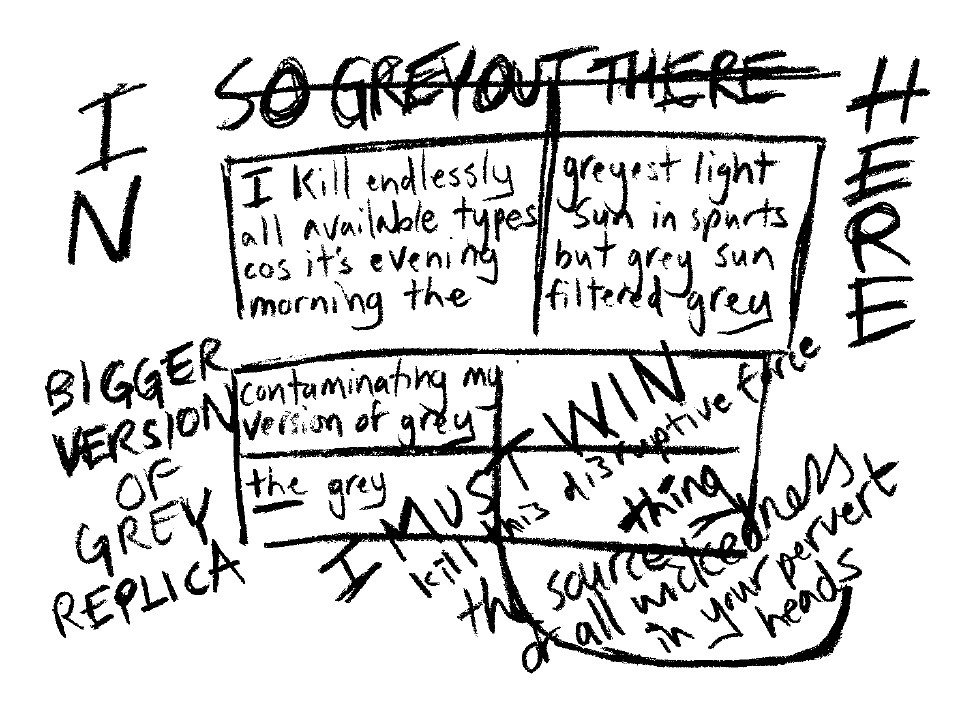 SO GREY OUT THERE
IN
HERE
I Kill endlessly
all available types
cos it's evening
morning the
greyest light
sun in spurts
but grey sun
filtered grey
BIGGER
VERSION
OF
GREY
REPLICA
contaminating my
version of grey
the grey
I MUST WIN
kill this disruptive force
the thing
source
of all wickedness
in your pervert
heads